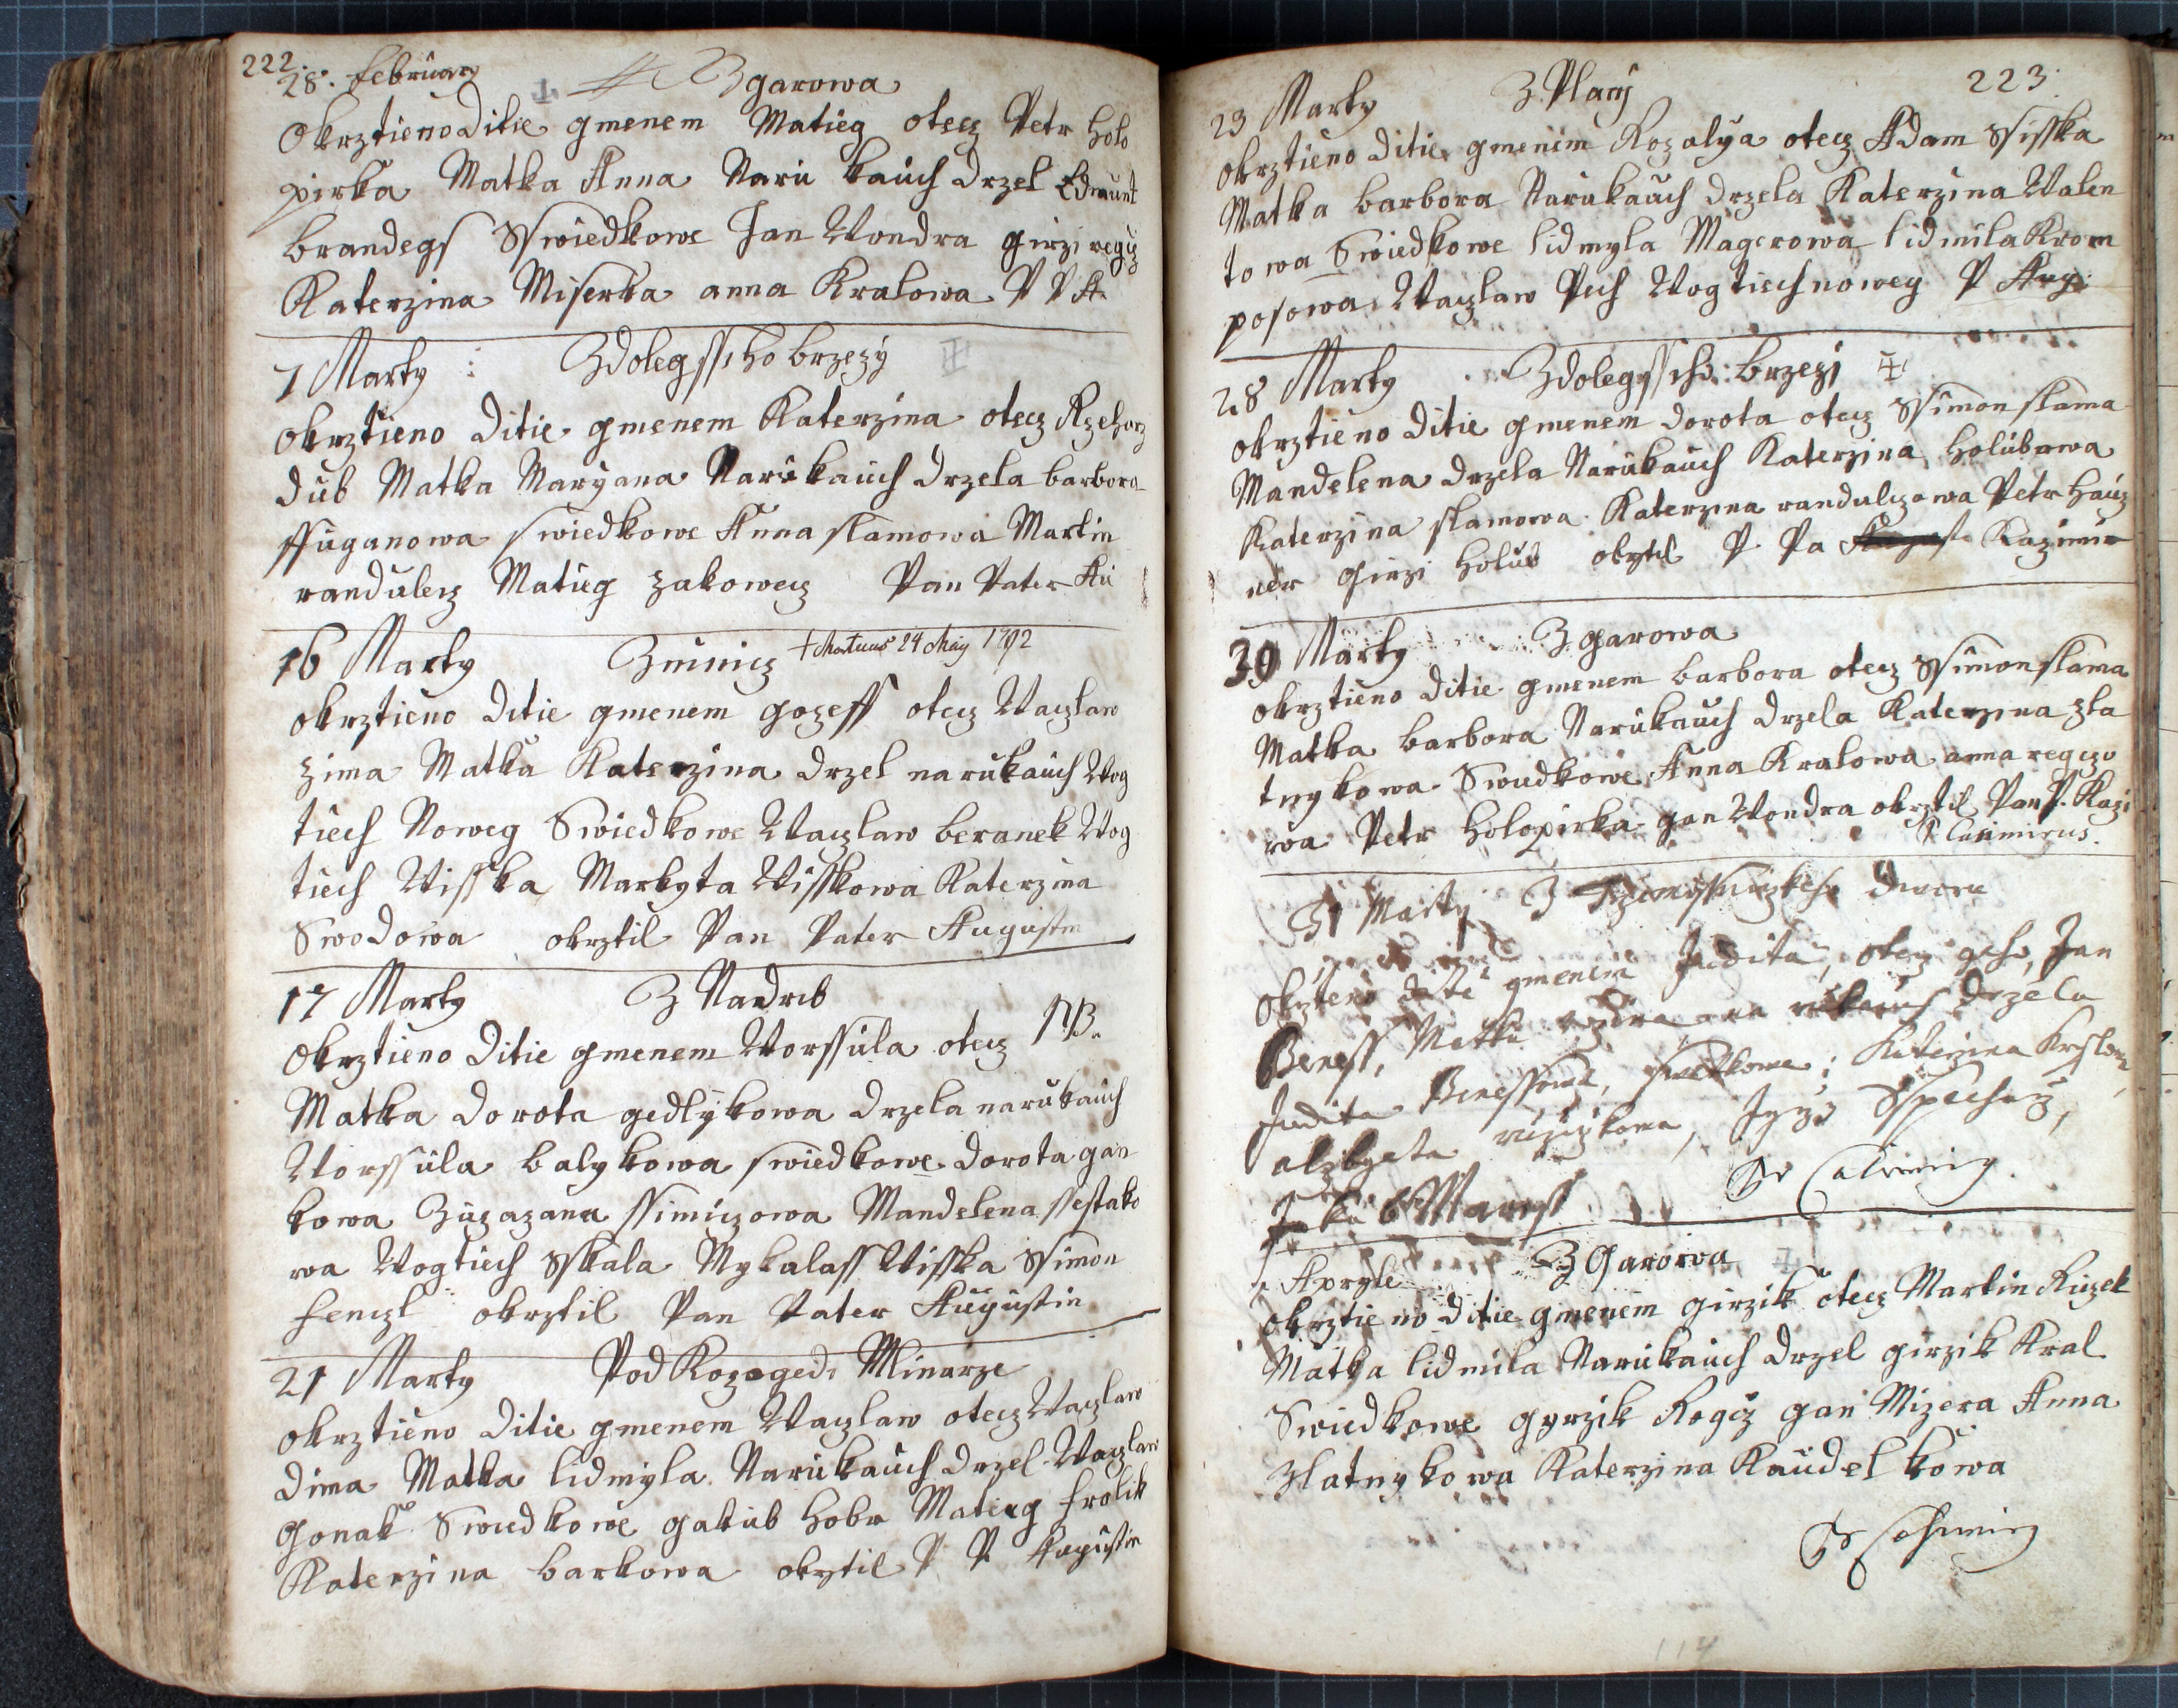 222.
28. februarÿ Zgarowa
Okrztieno Ditie gmenem Matieg otecz Petr holo
pirka Matka Anna Naru kauch Drzel Edmunt
brandegs Sswiedkowe Jan Vondra girzi regcz
Katerzina Miserka anna Kralowa P P A.
7 Marty : Zdolegssiho brzezÿ
okrztieno Ditie gmenem Katerzina otecz Rzehorz
dub Matka Maryana Narukauch Drzela barbora
ssuganowa swiedkowe Anna slamowa Martin
randulecz Matieg zakowecz Pan Pater Au
16 Marty Zunicz + Mortuus 24 Maÿ 1792
okrztieno Ditie gmenem gozeff otecz Vaczlaw
zima Matka Katerzina Drzel narukauch Vog
tiech Noweg Swiedkowe Vaczlaw beranek Vog
tiech Visska Markyta Visskowa Katerzina
Swodowa okrztil Pan Pater Augustin
17 Marty Z Nadrib
Okrztieno Ditie gmenem Vorssula otecz NB.
Matka Dorota gedlÿkowa Drzela narukauch
Vorssula balykowa swiedkowe Dorota gan
kowa Zuzazana ssimiczowa Mandelena ssestako
wa Vogtiech Sskala Mykalass Visska Ssimon
henczl okrztil Pan Pater Augustin
21 Marty Pod Kozoged: Minarze
okrztieno Ditie gmenem Vaczlaw otecz Vaczlaw
dima Matka lidmyla Narukauch Drzel Vaczlaw
gonak Swiedkowe gakub hobr Matieg frolik
Katerzina barkowa okrztil P P Augustin
223.
23 Marty Z Planÿ
okrztieno Ditie gmenem Rozalya otecz Adam Ssisska
Matka barbora Narukauch Drzela Katerzina Valen
towa Swiedkowe lidmyla Magerowa lidmila Krom
posowa Vaczlaw Pech Vogtiech noweg P Aug:
28 Marty Zdolegssiho: brzezi
okrztieno Ditie gmenem Dorota otecz Ssimon slama
Mandelena Drzela Narukauch Katerzina holubowa
Katerzina slamowa Katerzina randulczowa Petr hauz
ner girzi holub okrztil P Pa Kazimir
30 Marty Z garowa
okrztieno Ditie gmenem barbora otecz Ssimon slama
Matka barbora Narukauch Drzela Katerzina zla
tnykowa Swiedkowe Anna Kralowa anna regczo
wa Petr holopirka gan Vondra okrztil Pan P. Kazi
P. Casimirus.
31 Marty Z dworu
Okrzteno dite gmenem Judita, otecz geho, Jan
Beness, Matka na rukauch drzela
Judita Benessowa, swetkowe: Katerzina
alzbyeta Sspechacz,
Aprÿle Z Garowa
okrztieno Ditie gmenem girzik otecz Martin Ruzek
Matka lidmila Narukauch Drzel girzik Kral
Swiedkowe gyrzik Regcz gan Mizera Anna
Zlatnykowa Katerzina Kaudelkowa
114